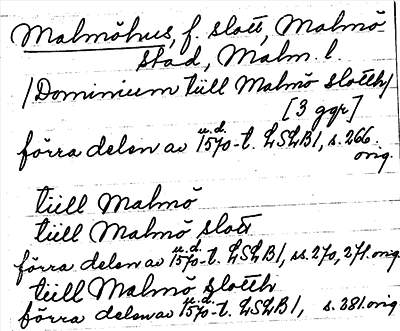 Malmöhus, f. slott, Malmö
stad, Malm. l.
/Dominium tüll Malmö slotth/
[3 ggr]
förra delen av u.d. 1570-t. LSLB1, s. 266
orig.
tüll Malmö
tüll Malmö slott
förra delen av u.d. 1570-t. LSLB1, ss. 270, 271. orig.
tüll Malmö slotth
förra delen av u.d. 1570-t. LSLB1, s. 381. orig.